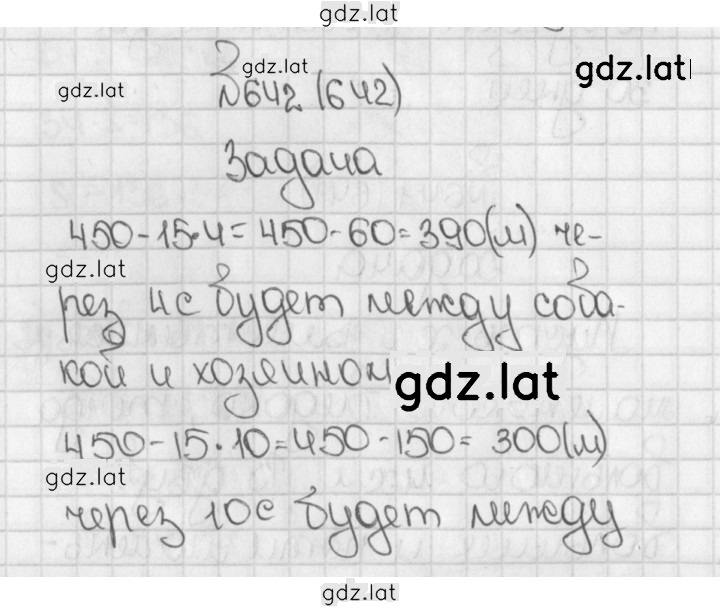 gdz.lat
gdz.lat
gdz.lat
gdz.lat
№642 (642)
Задача
450-15·4=450-60=390(м) че-
gdz.lat
рез 4с будет между соба-
кой и хозяином
gdz.lat
450-15·10=450-150=300(м)
gdz.lat
через 10с будет между
gdz.lat